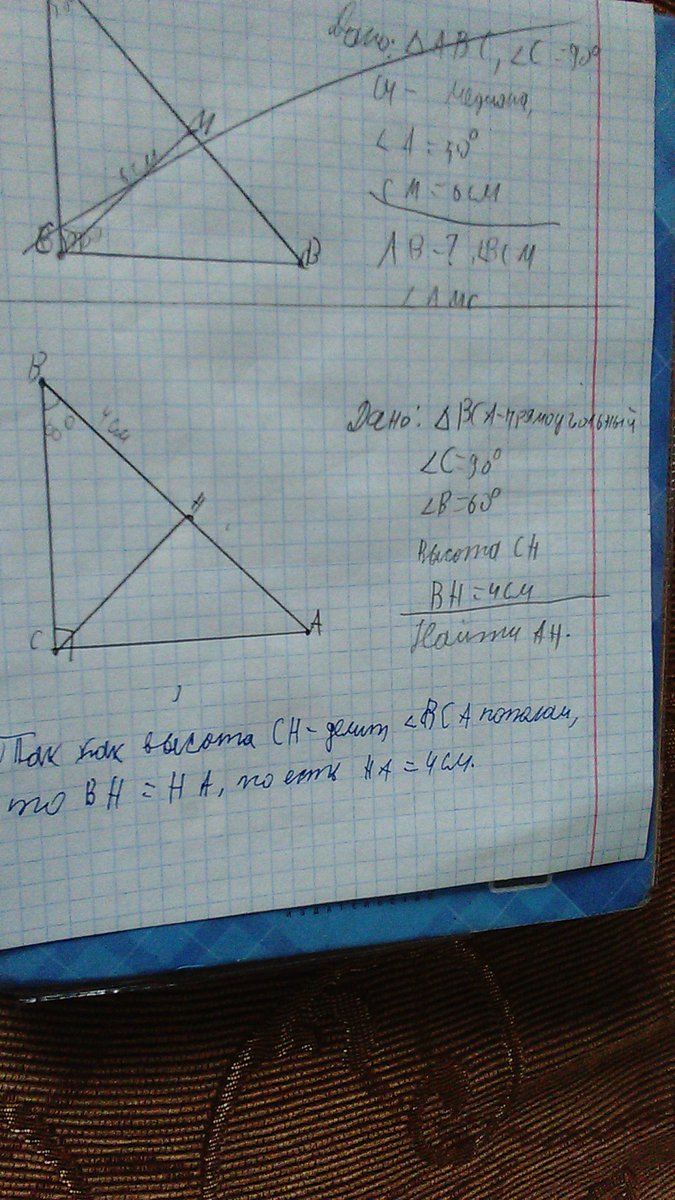 Дано: △ABC, ∠C=90°
CM- медиана,
∠A=30°
CM=6см
AB-?, ∠BCM
∠AMC
M
C
B
B
60°
4см
H
C
A
Дано: △BCA-прямоугольный
∠C=90°
∠B=60°
Высота CH
BH=4см
Найти AH.
Так как высота CH-делит ∠BCA пополам,
то BH=HA, то есть HA=4см.